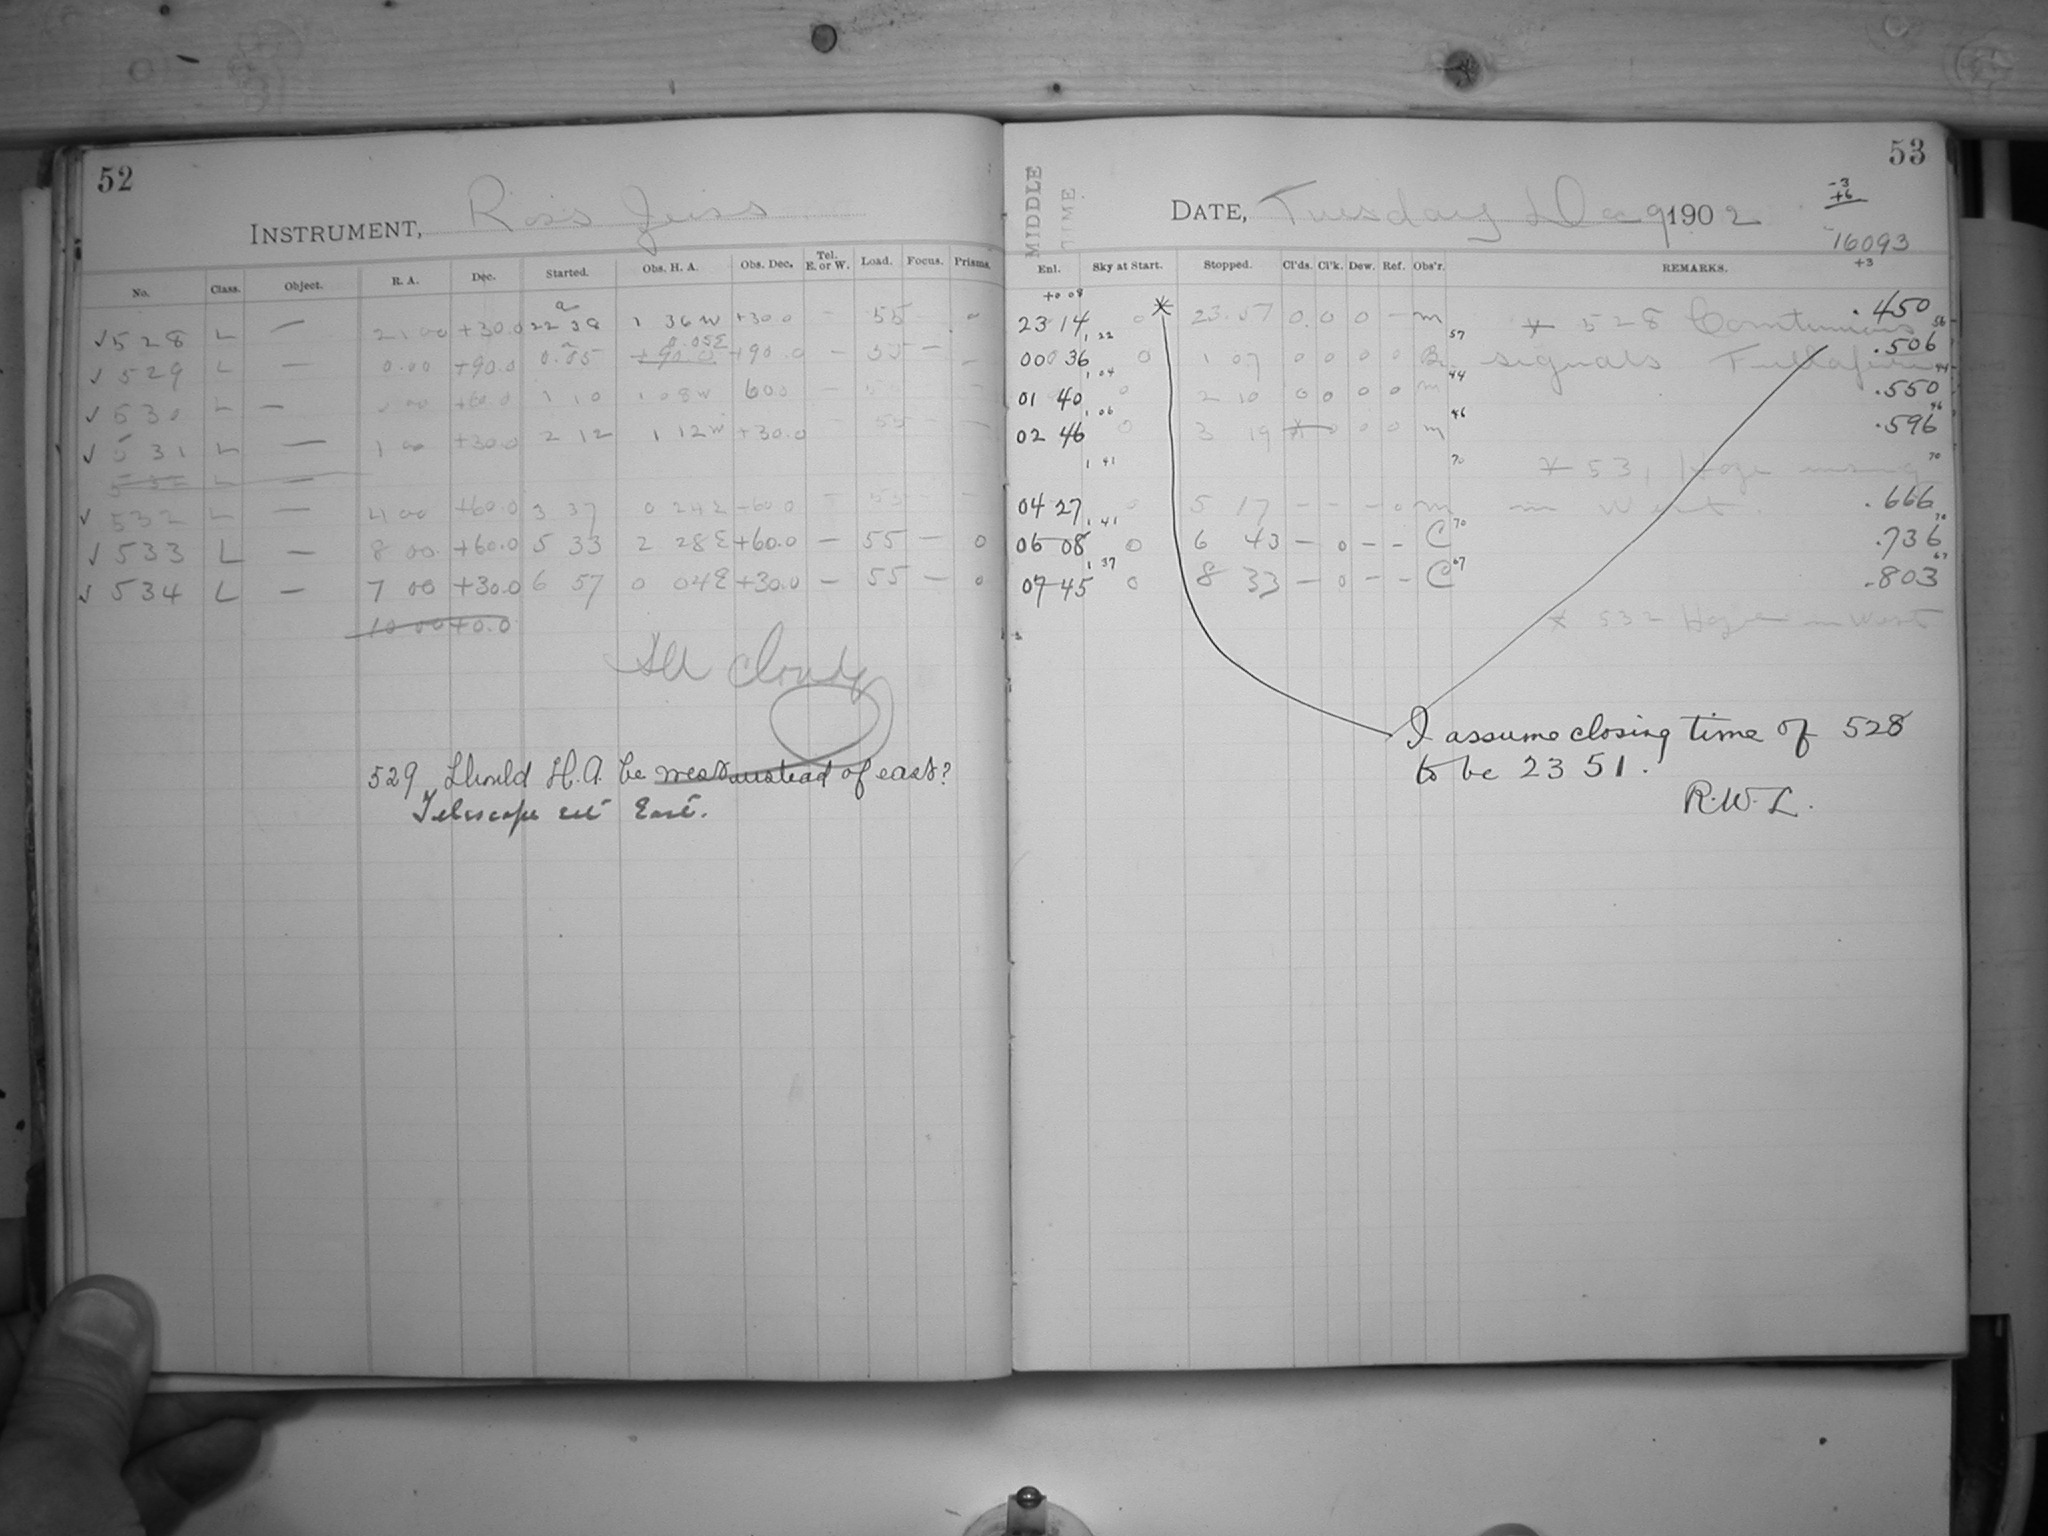 52
INSTRUMENT, Ross Zeiss
No. Class. Object. R. A. Dec. Started. Obs. H. A. Obs. Dec. Tel. E. or W. Load. Focus. Prisms.
✓ 528 L — 21 00 +30.0 22 38 1 36 W +30.0 — 55 — 0
0.05E
✓ 529 L — 0.00 +90.0 0.05 +90.0 +90.0 — 55 — —
✓ 530 L — +60.0 1 10 1 08 W 60.0
✓ 531 L — 1 00 +30.0 2 12 1 12 W +30.0 — 55 — —
532 L —
✓ 532 L — 4 00 +60.0 3 37 0 24 E +60.0 — 55 — —
✓ 533 L — 8 00 +60.0 5 33 2 28 E +60.0 — 55 — 0
✓ 534 L — 7 00 +30.0 6 57 0 04 E +30.0 — 55 — 0
10 00 +0.0
All cloudy
529 Should H.A. be west instead of east?
Telescope set East.
53
MIDDLE TIME
DATE, Tuesday Dec 9 1902
-3
+6
16093
+3
Enl. Sky at Start. Stopped. Cl'ds. Cl'k. Dew. Ref. Obs'r. REMARKS.
+0 08
23 14 0 * 23.57 0 0 0 — m * 528 Continuous .450
1 22 57 56
00 36 0 1 07 0 0 0 0 signals .506
1 04 44 44
01 40 0 2 10 0 0 0 0 m .550
1 06 46 46
02 46 0 3 19 * 0 0 0 m .596
1 41 70 * 531 Haze rising 70
04 27 0 5 17 — — — 0 m in West. .666
1 41 70 70
06 08 0 6 43 — 0 — — C .736
1 37 67 67
07 45 0 8 33 — 0 — — C .803
* 532 Haze in West
I assume closing time of 528
to be 23 51.
R.W.L.